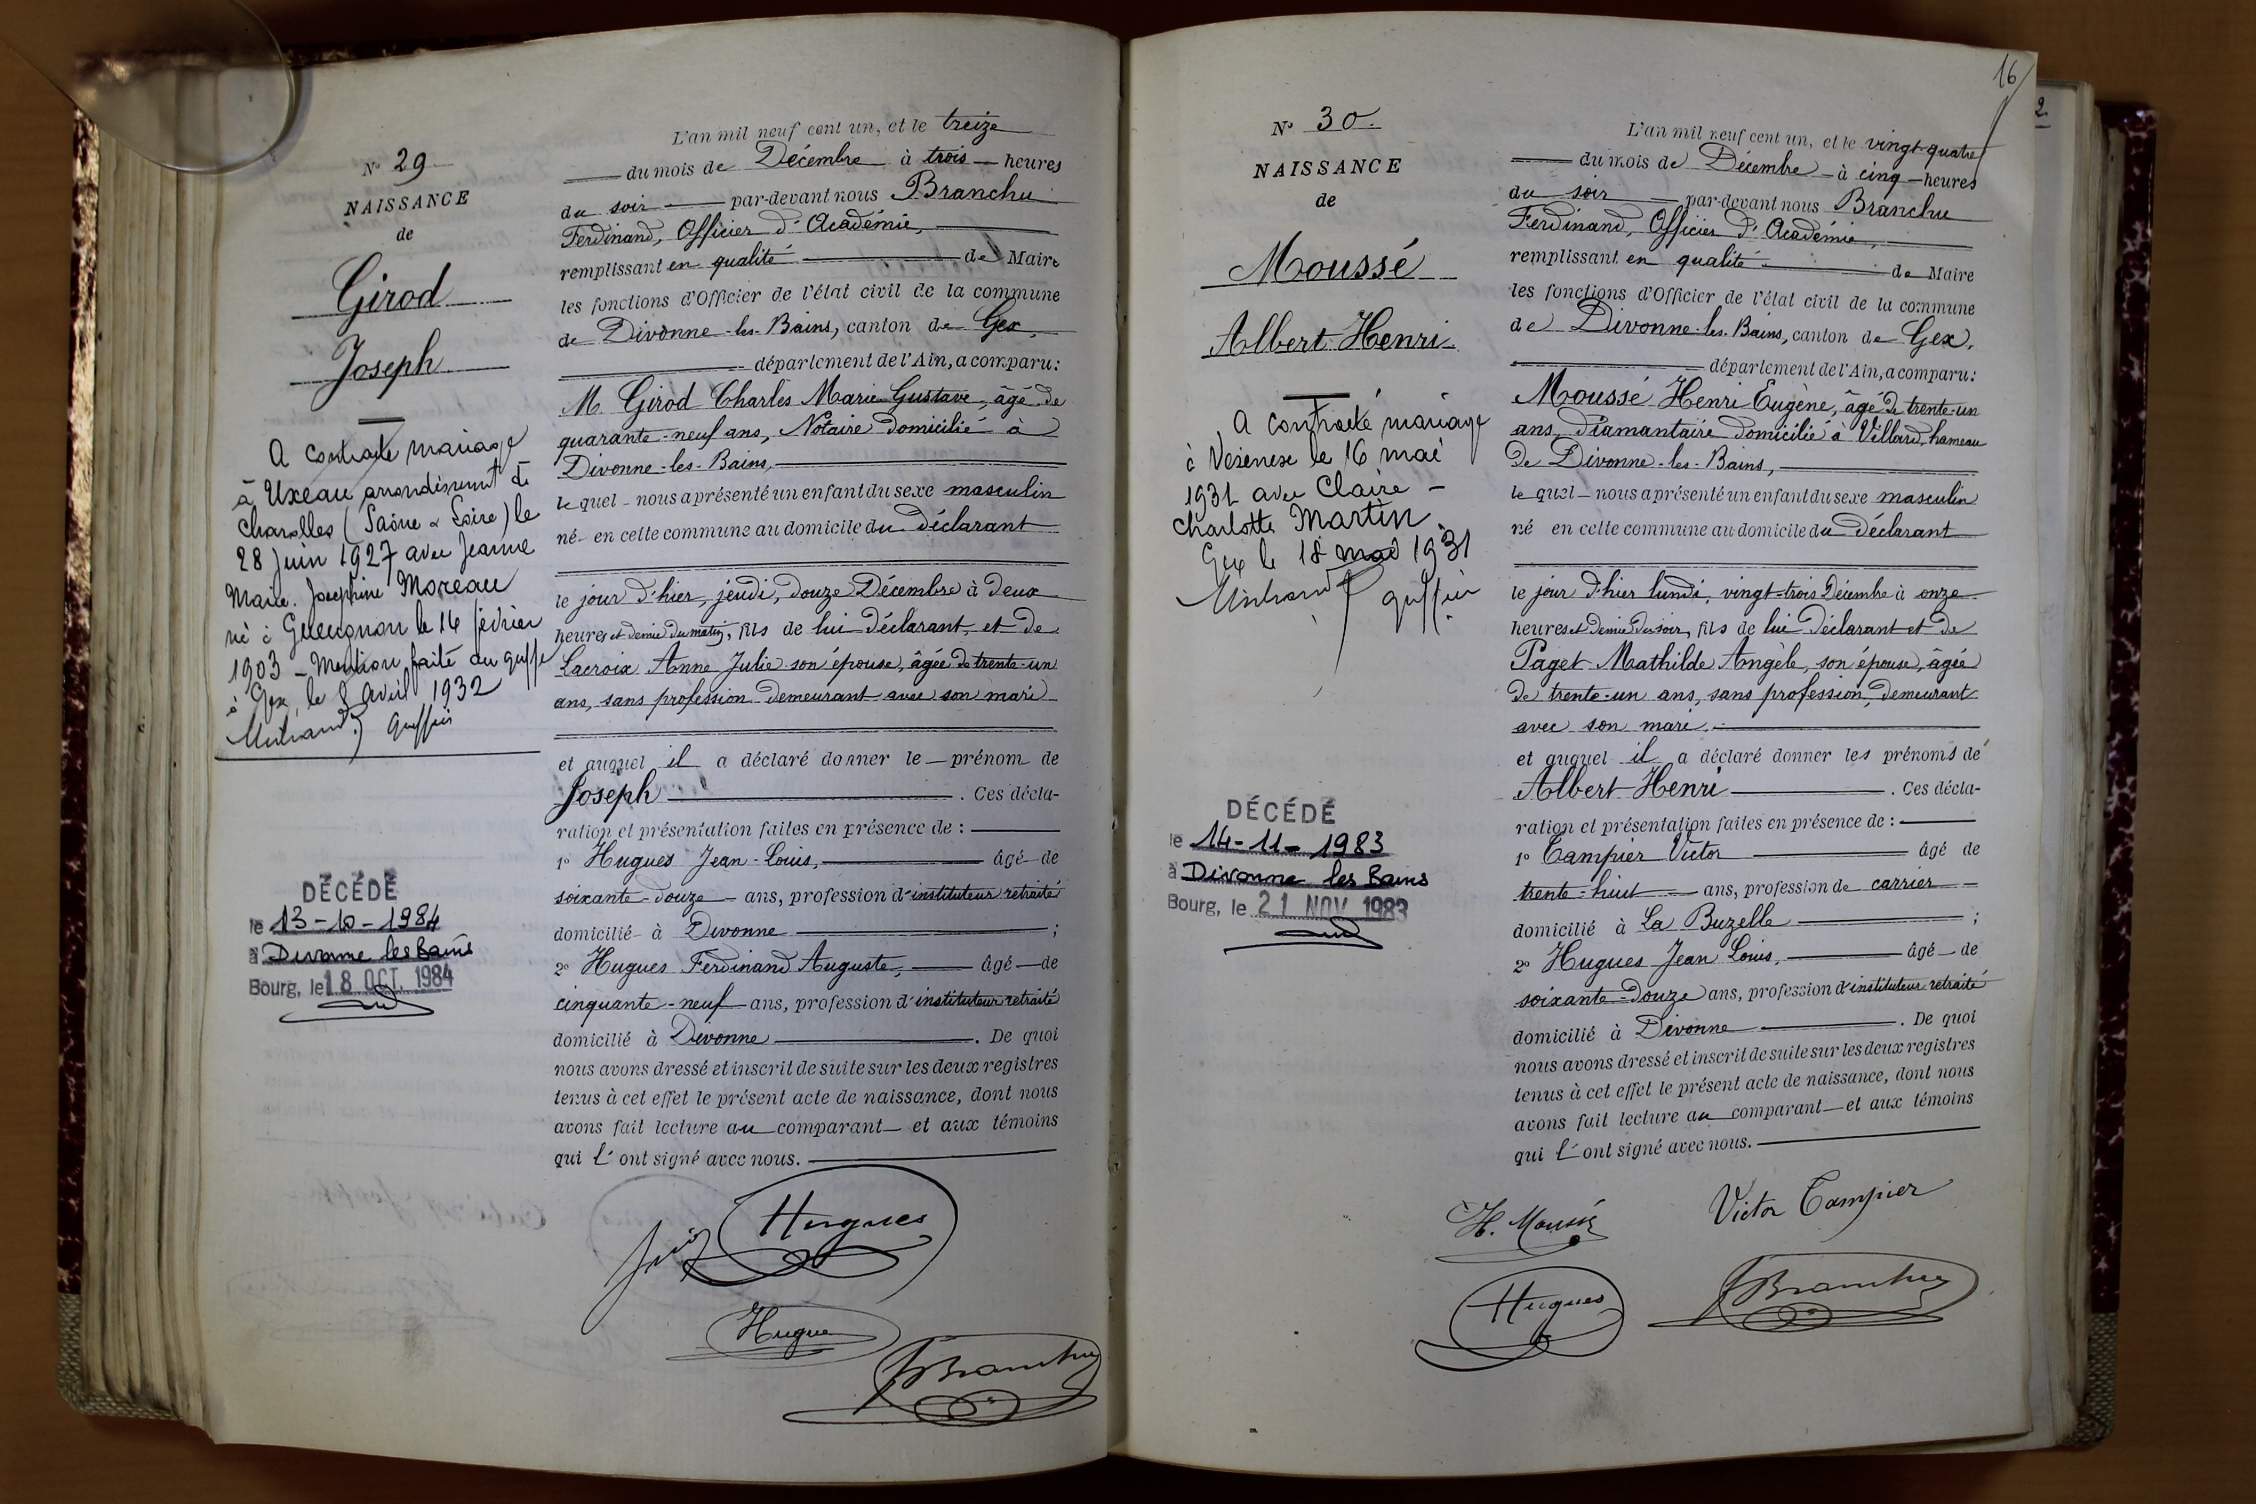 N° 29
NAISSANCE
de
Girod
Joseph
A contracté mariage
à Uxeau arrondissement de
Charolles (Saône & Loire) le
28 Juin 1927 avec Jeanne
Marie Josephine Moreau
né à Gueugnon le 14 février
1903 - Mention faite au greffe
à Gex, le 8 avril 1932
greffier
DÉCÉDÉ
le 13-10-1984
à Divonne les Bains
Bourg, le 18 OCT. 1984
L'an mil neuf cent un, et le treize
du mois de Décembre à trois heures
du soir par-devant nous Branchu
Ferdinand, Officier d'Académie,
remplissant en qualité de Maire
les fonctions d'Officier de l'état civil de la commune
de Divonne-les-Bains, canton de Gex,
département de l'Ain, a comparu:
M Girod Charles Marie Gustave, âgé de
quarante-neuf ans, Notaire domicilié à
Divonne-les-Bains,
lequel nous a présenté un enfant du sexe masculin
né en cette commune au domicile du déclarant
le jour d'hier, jeudi, douze Décembre à deux
heures et demie du matin, fils de lui déclarant, et de
Lacroix Anne Julie son épouse, âgée de trente-un
ans, sans profession demeurant avec son mari
et auquel il a déclaré donner le prénom de
Joseph. Ces décla-
ration et présentation faites en présence de :
1° Hugues Jean-Louis, âgé de
soixante-douze ans, profession d'instituteur retraité
domicilié à Divonne ;
2° Hugues Ferdinand Auguste, âgé de
cinquante-neuf ans, profession d'instituteur retraité
domicilié à Divonne. De quoi
nous avons dressé et inscrit de suite sur les deux registres
tenus à cet effet le présent acte de naissance, dont nous
avons fait lecture au comparant et aux témoins
qui l'ont signé avec nous.
Hugues
Hugues
Branchu
16
2
N° 30.
NAISSANCE
de
Moussé
Albert Henri
A contracté mariage
à Vésenex le 16 mai
1931 avec Claire
Charlotte Martin.
Gex le 18 mai 1931
greffier
DÉCÉDÉ
le 14-11-1983
à Divonne les Bains
Bourg, le 21 NOV 1983
L'an mil neuf cent un, et le vingt-quatre
du mois de Décembre à cinq heures
du soir par-devant nous Branchu
Ferdinand, Officier d'Académie,
remplissant en qualité de Maire
les fonctions d'Officier de l'état civil de la commune
de Divonne-les-Bains, canton de Gex,
département de l'Ain, a comparu:
Moussé Henri Eugène, âgé de trente-un
ans, Diamantaire domicilié à Villard, hameau
de Divonne-les-Bains,
lequel nous a présenté un enfant du sexe masculin
né en cette commune au domicile du déclarant
le jour d'hier lundi, vingt-trois Décembre à onze
heures et demie du soir, fils de lui déclarant et de
Paget Mathilde Angèle, son épouse, âgée
de trente-un ans, sans profession, demeurant
avec son mari.
et auquel il a déclaré donner les prénoms de
Albert Henri. Ces décla-
ration et présentation faites en présence de :
1° Tampier Victor âgé de
trente-huit ans, profession de carrier
domicilié à La Buzelle ;
2° Hugues Jean Louis, âgé de
soixante-douze ans, profession d'instituteur retraité
domicilié à Divonne. De quoi
nous avons dressé et inscrit de suite sur les deux registres
tenus à cet effet le présent acte de naissance, dont nous
avons fait lecture au comparant et aux témoins
qui l'ont signé avec nous.
H. Moussé
Victor Tampier
Hugues
Branchu